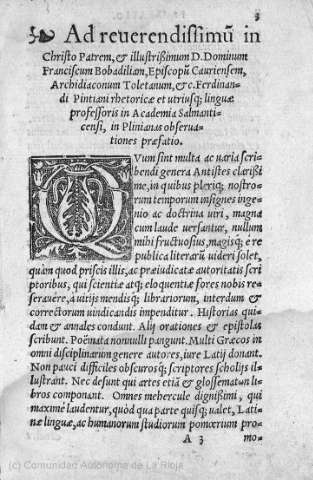 3
Ad reuerendissimũ in
Christo Patrem, & illustrißimum D. Dominum
Franciscum Bobadiliam, Episcopũ Cauriensem,
Archidiaconum Toletanum, &c. Ferdinan-
di Pintiani rhetoricæ et utriusq; linguæ
professoris in Academia Salmanti-
censi, in Plinianas obserua-
tiones præfatio.
QVum sint multa ac uaria scri-
bendi genera Antistes clarißi
me, in quibus pleriq; nostro-
rum temporum insignes inge-
nio ac doctrina uiri, magna
cum laude uersantur, nullum
mihi fructuosius, magisq; è re
publica literarũ uideri solet,
quàm quod priscis illis, ac præiudicatæ autoritatis scri
ptoribus, qui scientiæ atq; eloquentiæ fores nobis re-
serauêre, à uitijs mendisq; librariorum, interdum &
correctorum uindicandis impenditur. Historias qui-
dan & annales condunt. Alij orationes & epistolas
scribunt. Poëmata nonnulli pangunt. Multi Græcos in
omni disciplinarum genere autores, iure Latij donant.
Non pauci difficiles obscurosq; scriptores scholijs il-
lustrant. Nec desunt qui artes etiã & glossemat̃un li-
bros componant. Omnes mehercule dignißimi, qui
maximè laudentur, quòd qua parte quisq; ualet, Lati-
næ linguæ, ac humanorum studiorum pomœrium pro-
A 3
mo-
(c) Comunidad Autónoma de La Rioja